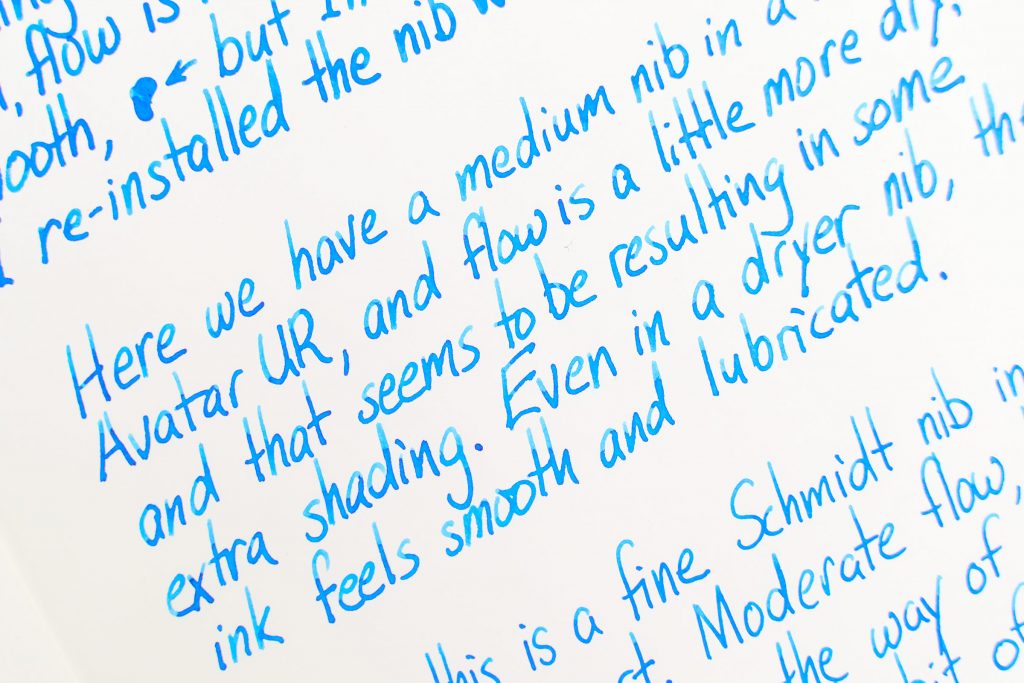 flow is
ooth, but
re-installed the nib
Here we have a medium nib in a
Avatar UR, and flow is a little more dry,
and that seems to be resulting in some
extra shading. Even in a dryer nib, the
ink feels smooth and lubricated.
this is a fine Schmidt nib in
Moderate flow,
the way of
bit of